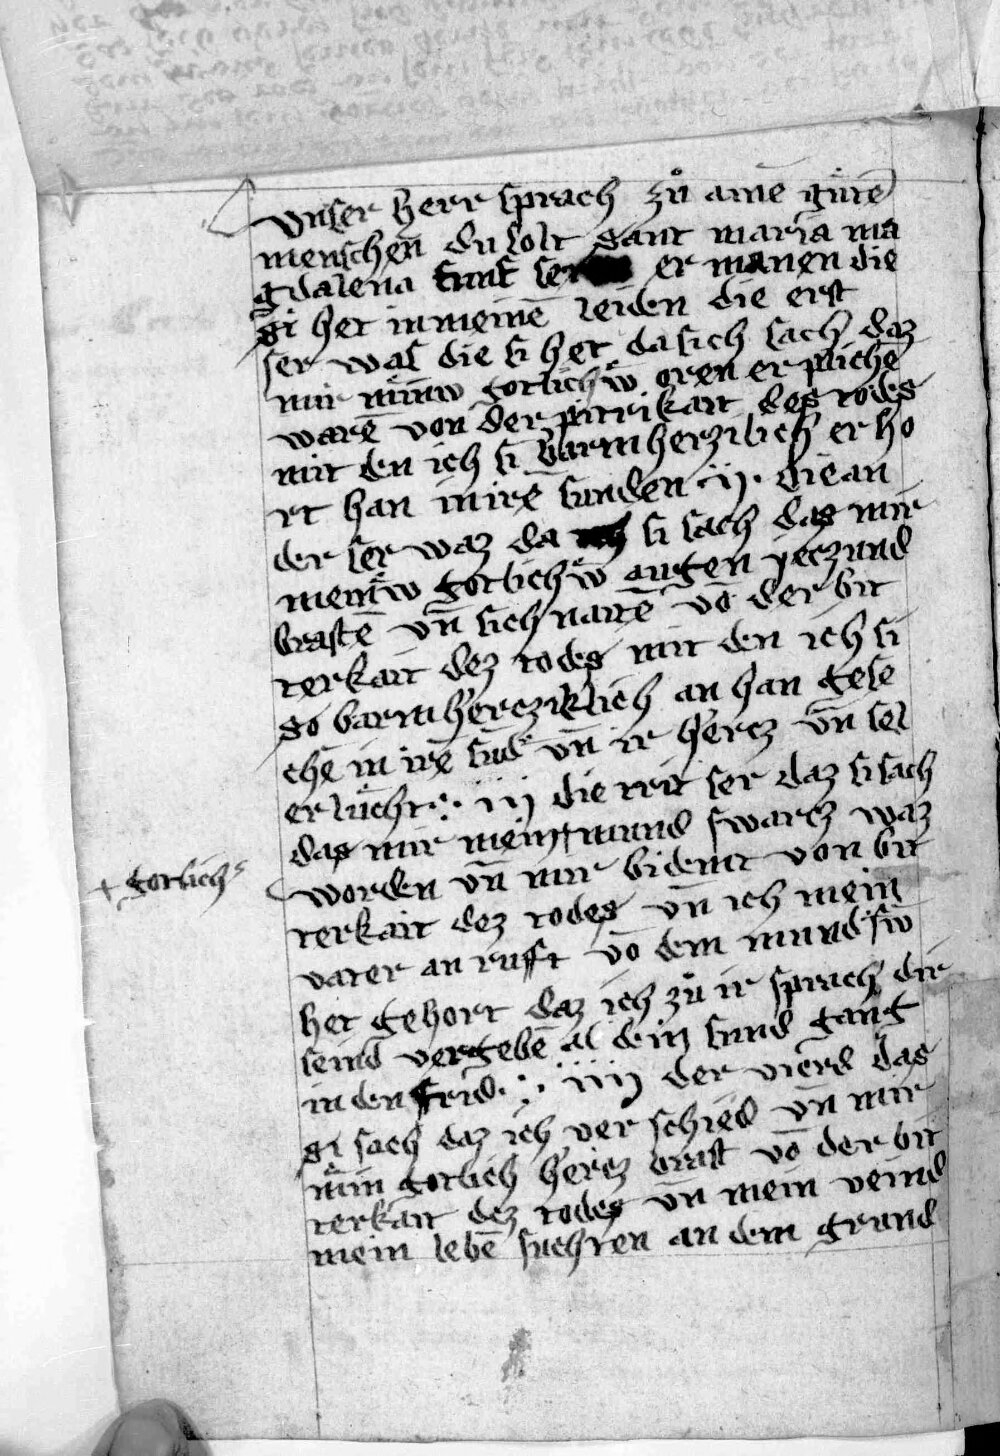 vnser herr sprach zů ainē gůtē
menschen du solt sant maria ma
gdalena funf ser er manen die
si het in meinē leiden die erst
ser waſ die si het da sich sach daz
mir götlichw̄ oren er plichē
warē von der pitrikait des todes
mit den ich si barmherzzlich er ho
rt han in irē sunden ·ij· die an
der ser waz da si sach das mir
meinw gotlichw̄ augen yeczund
brastē vn̄ sich vō der bit
terkait dez todes mit den ich si
so barmherczīklich an han gese
chē in irē sūd vn̄ ir hercz vn̄ sel
erlücht : iij die trit ser daz si sach
das mir mein + mund swarcz waz
+ gotlichs
worden vn̄ mir bidemt von bit
terkait dez todes vn̄ ich mein
vater an rufft vō dem mund sw̄
het gehort daz ich zů ir sprach dir
seind vergebē al dein sund gang
in den frid : iiij der vierd das
si sach daz ich ver schied vn̄ mir
min gotlich hercz brast vō der bit
terkait dez todes vn̄ mein veind
mein lebē suchten an dem grund